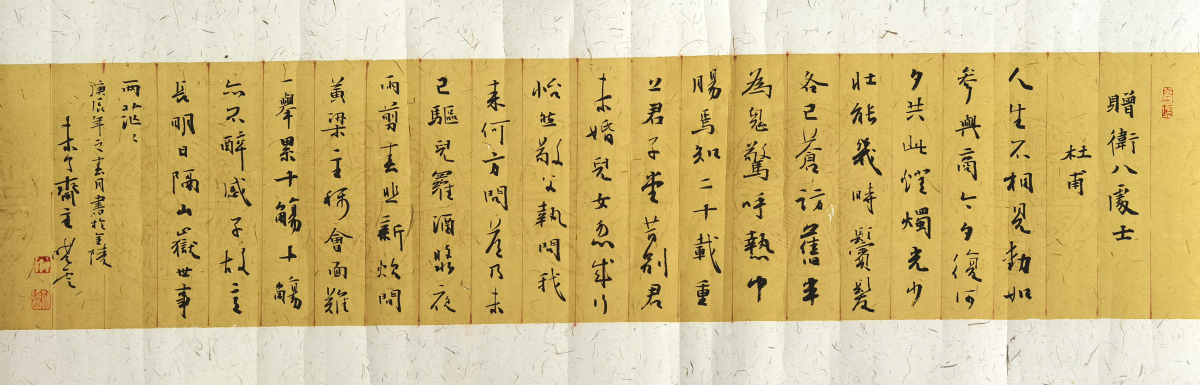 贈衛八處士
杜甫
人生不相見動如
參與商今夕復何
夕共此燈燭光少
壯能幾時鬢髮
各已蒼訪舊半
為鬼驚呼熱中
腸焉知二十載重
上君子堂昔別君
未婚兒女忽成行
怡然敬父執問我
來何方問答乃未
已驅兒羅酒漿夜
雨剪春韭新炊間
黃粱主稱會面難
一舉累十觴十觴
亦不醉感子故意
長明日隔山嶽世事
兩茫々
庚辰年之春月書於金陵
齋主